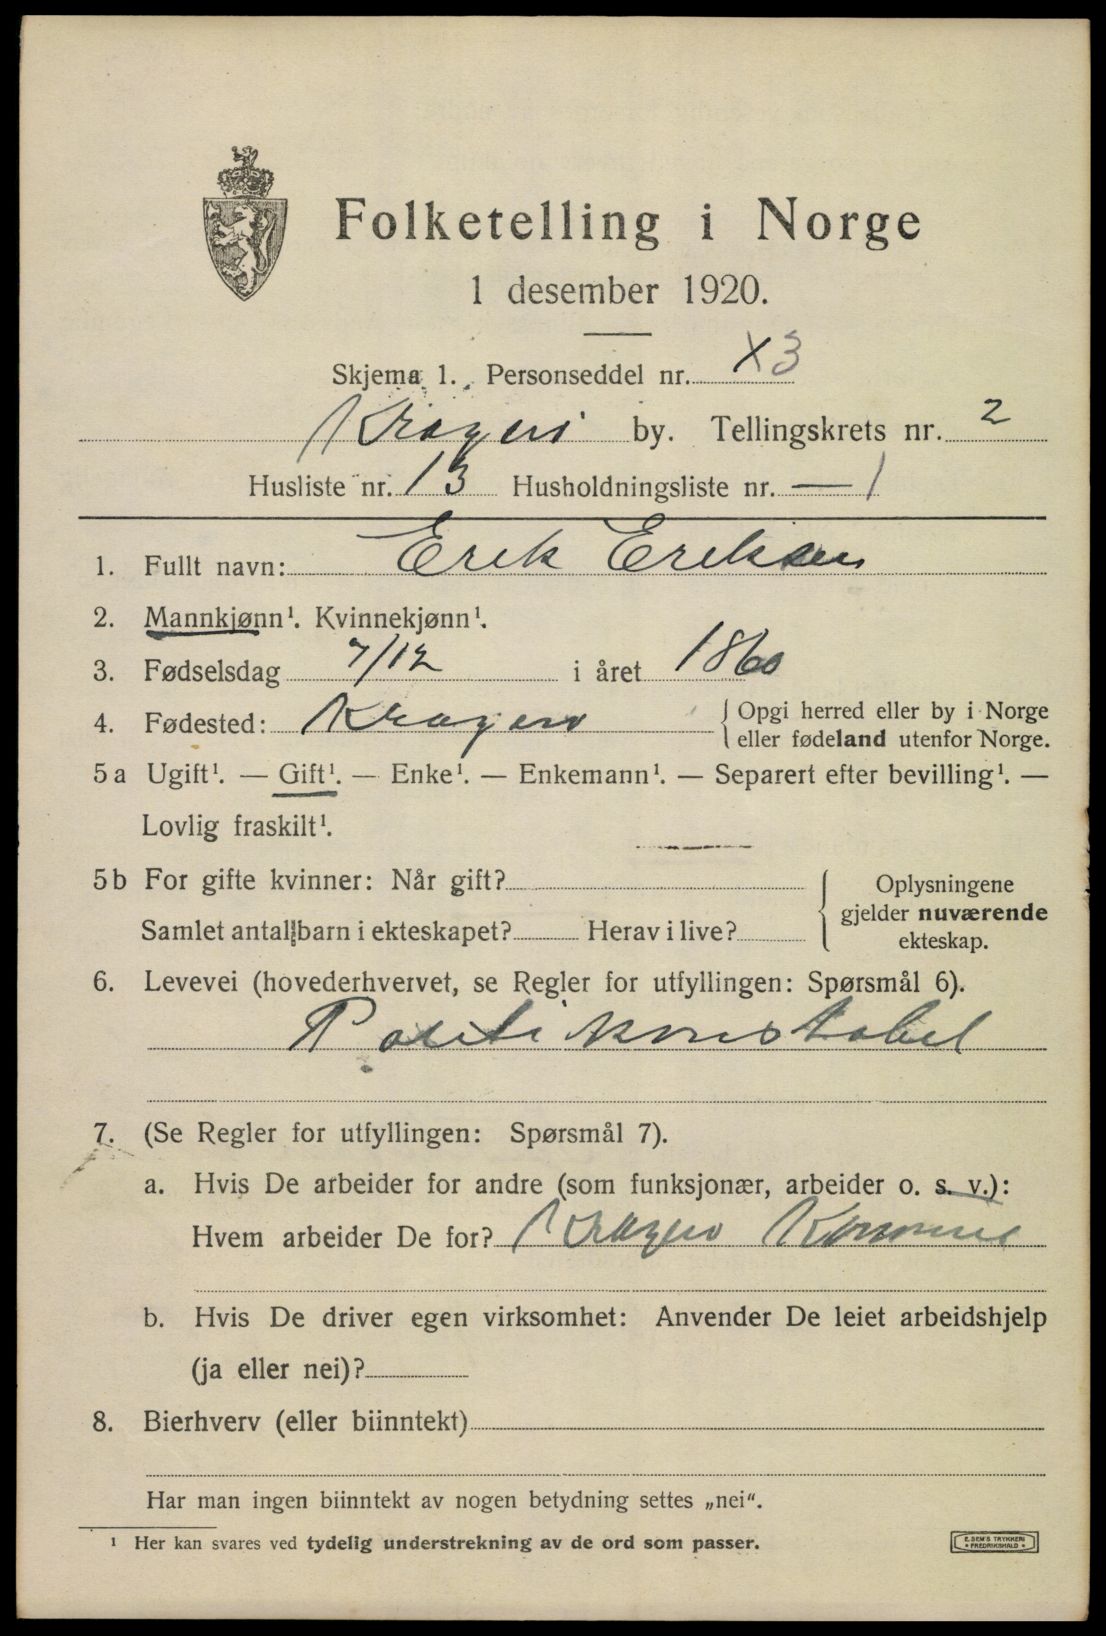 Folketelling i Norge
1 desember 1920.
Skjema 1. Personseddel nr. X3
Kragerø by. Tellingskrets nr. 2
Husliste nr. 13 Husholdningsliste nr. — 1
1. Fullt navn: Erik Eriksen
2. Mannkjønn¹. Kvinnekjønn¹.
3. Fødselsdag 7/12 i året 1860
4. Fødested: Kragerø { Opgi herred eller by i Norge
eller fødeland utenfor Norge.
5a Ugift¹. — Gift¹. — Enke¹. — Enkemann¹. — Separert efter bevilling¹. —
Lovlig fraskilt¹.
5b For gifte kvinner: Når gift? { Oplysningene
gjelder nuværende
Samlet antall barn i ekteskapet? Herav i live? ekteskap.
6. Levevei (hovederhvervet, se Regler for utfyllingen: Spørsmål 6).
Politikonstabel
7. (Se Regler for utfyllingen: Spørsmål 7).
a. Hvis De arbeider for andre (som funksjonær, arbeider o. s. v.):
Hvem arbeider De for? Kragerø Kommune
b. Hvis De driver egen virksomhet: Anvender De leiet arbeidshjelp
(ja eller nei)?
8. Bierhverv (eller biinntekt)
Har man ingen biinntekt av nogen betydning settes „nei“.
¹ Her kan svares ved tydelig understrekning av de ord som passer.
E. SEM'S TRYKKERI
• FREDRIKSHALD •